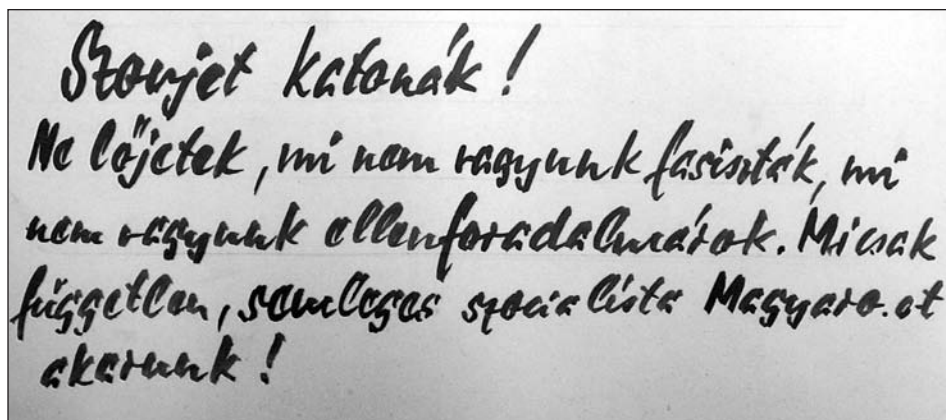 Szovjet katonák!
Ne lőjetek, mi nem vagyunk fasiszták, mi
nem vagyunk ellenforadalmárok. Mi csak
független, semleges szocialista Magyaro.ot
akarunk!